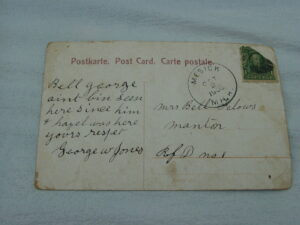 Postkarte. Post Card. Carte postale.
MESICK
MICH
Bell george
aint bin seen
here since him
& hazel was here
yours respet
George W Jones
Mrs Bell
Manton
RFD no 1